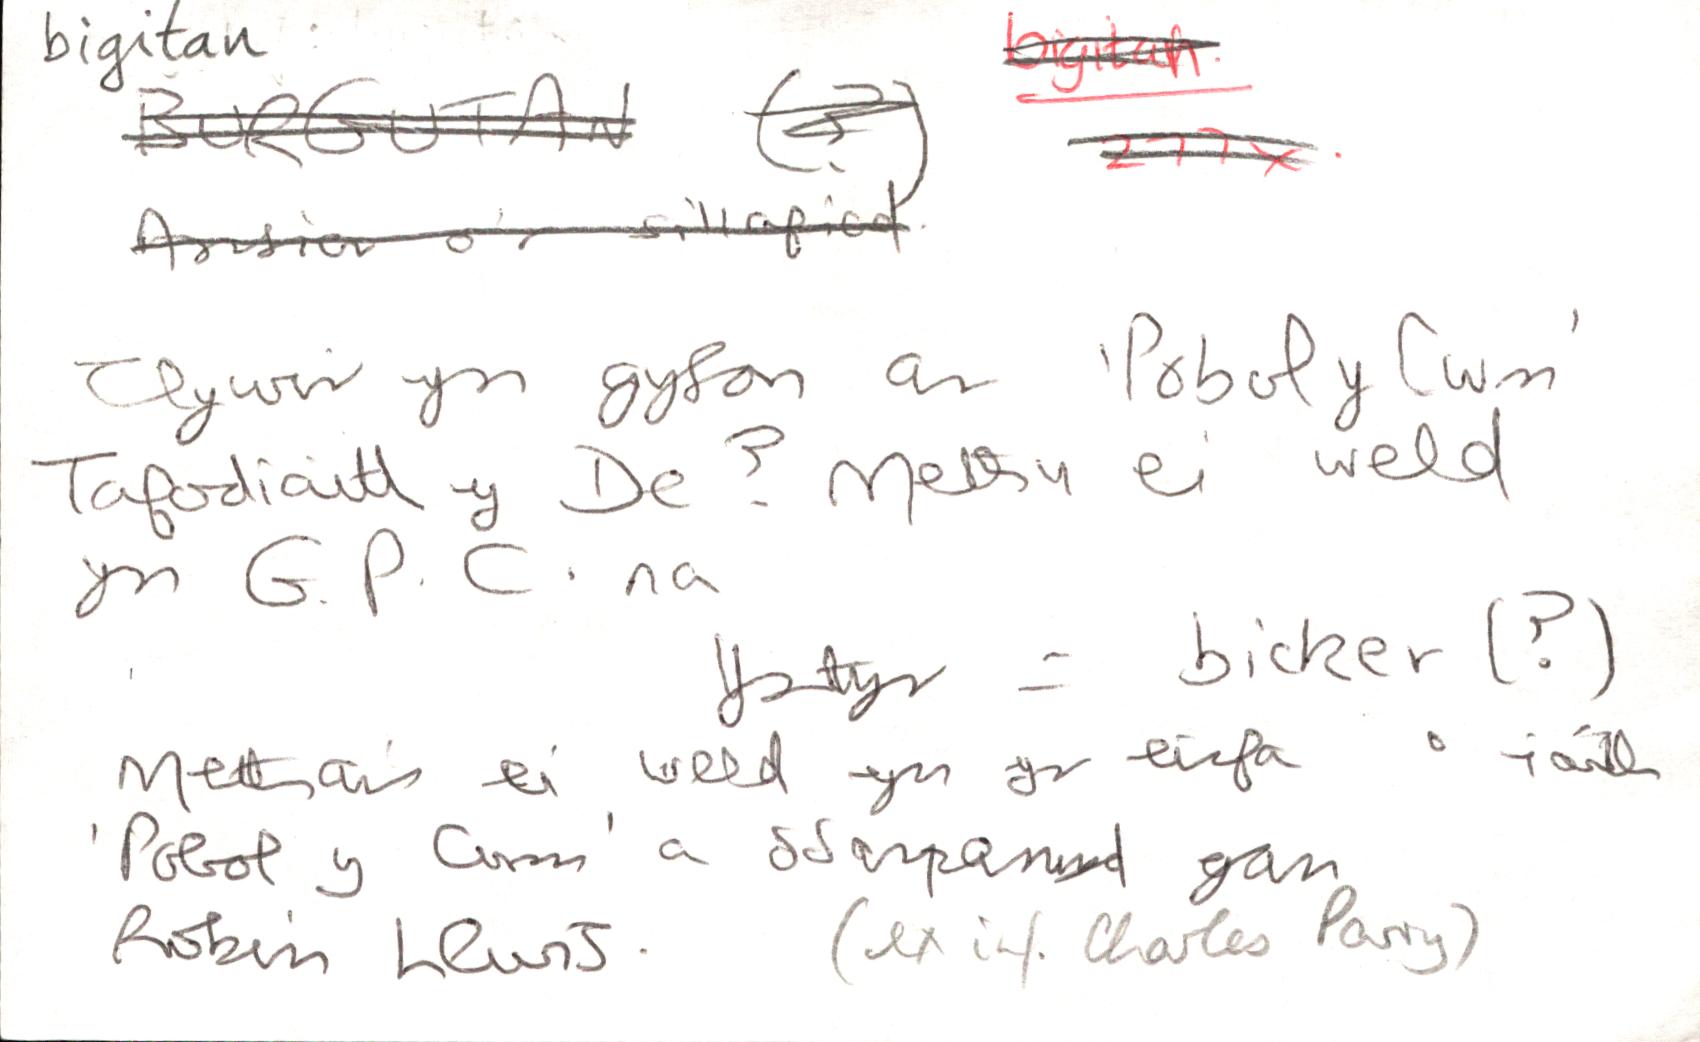 bigitan
bigitan.
BURGUTAN (?)
277x.
Ansicr o'r sillafiad.
Clywir yn gyson ar 'Pobol y Cwm'
Tafodiaith y De? Methu ei weld
yn G.P.C. na
Ystyr = bicker (?)
Methais ei weld yn yr eirfa o iaith
'Pobol y Cwm' a ddarparwyd gan
Robin Lewis. (ex inf. Charles Parry)